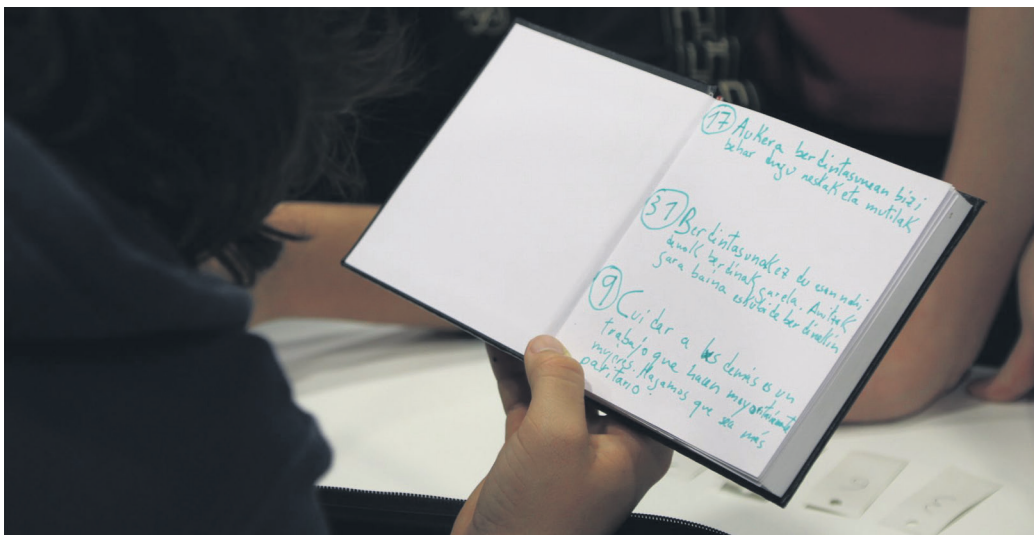 17 Aukera berdintasunean bizi
behar dugu neskak eta mutilak
31 Berdintasunak ez du esan nahi,
denok berdinak garela. Anitzak
gara baina eskubide berdinekin
9 Cuidar a los demás es un
trabajo que hacen mayoritariamente
mujeres. Hagamos que sea más
paritario.